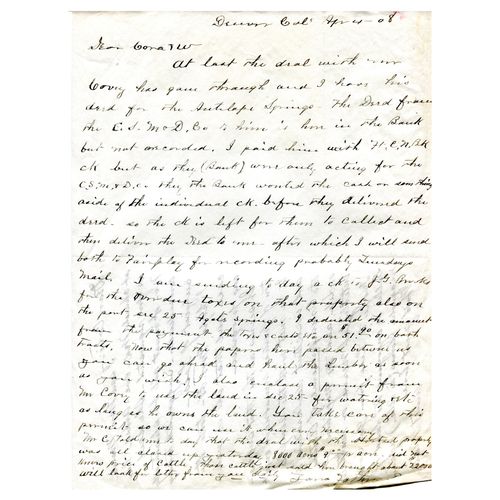 Denver Colo Apr 4 - 08
Dear Cora & W
At last the deal with Mr
Covey has gone through and I have his
deed for the Antelope Springs. The Deed from
the C.S. M & D, Co to him is here in the Bank
but not recorded. I paid him with H.C.N.BK
ck but as they (Bank) were only acting for the
C,S,M,& D,Co they the Bank wanted the cash or something
aside of the individual ck. before they delivered the
deed. so the ck is left for them to collect and
then deliver the Deed to me. after which I will send
both to Fairplay for recording probably Tuesdays
Mail. I am sending to day a ck to J.G.
for the Overdue taxes on that property also on
the part sec 25 Springs. I deducted the amount
from the payment the taxes & costs to on $51.90 on both
tracts. Now that the papers have passed between us
you can go ahead and haul the lumber as soon
as you wish. I also enclose a permit from
Mr Covey to use the land in sec 25 for watering etc
as long as he owns the land. You take care of this
permit so we can use it when ever necessary
Mr C, told me to day that the deal with the property
was all closed up yesterday. 8000 acres did not
know price of Cattle. Those cattle just sold here brought about
will look for letter from you